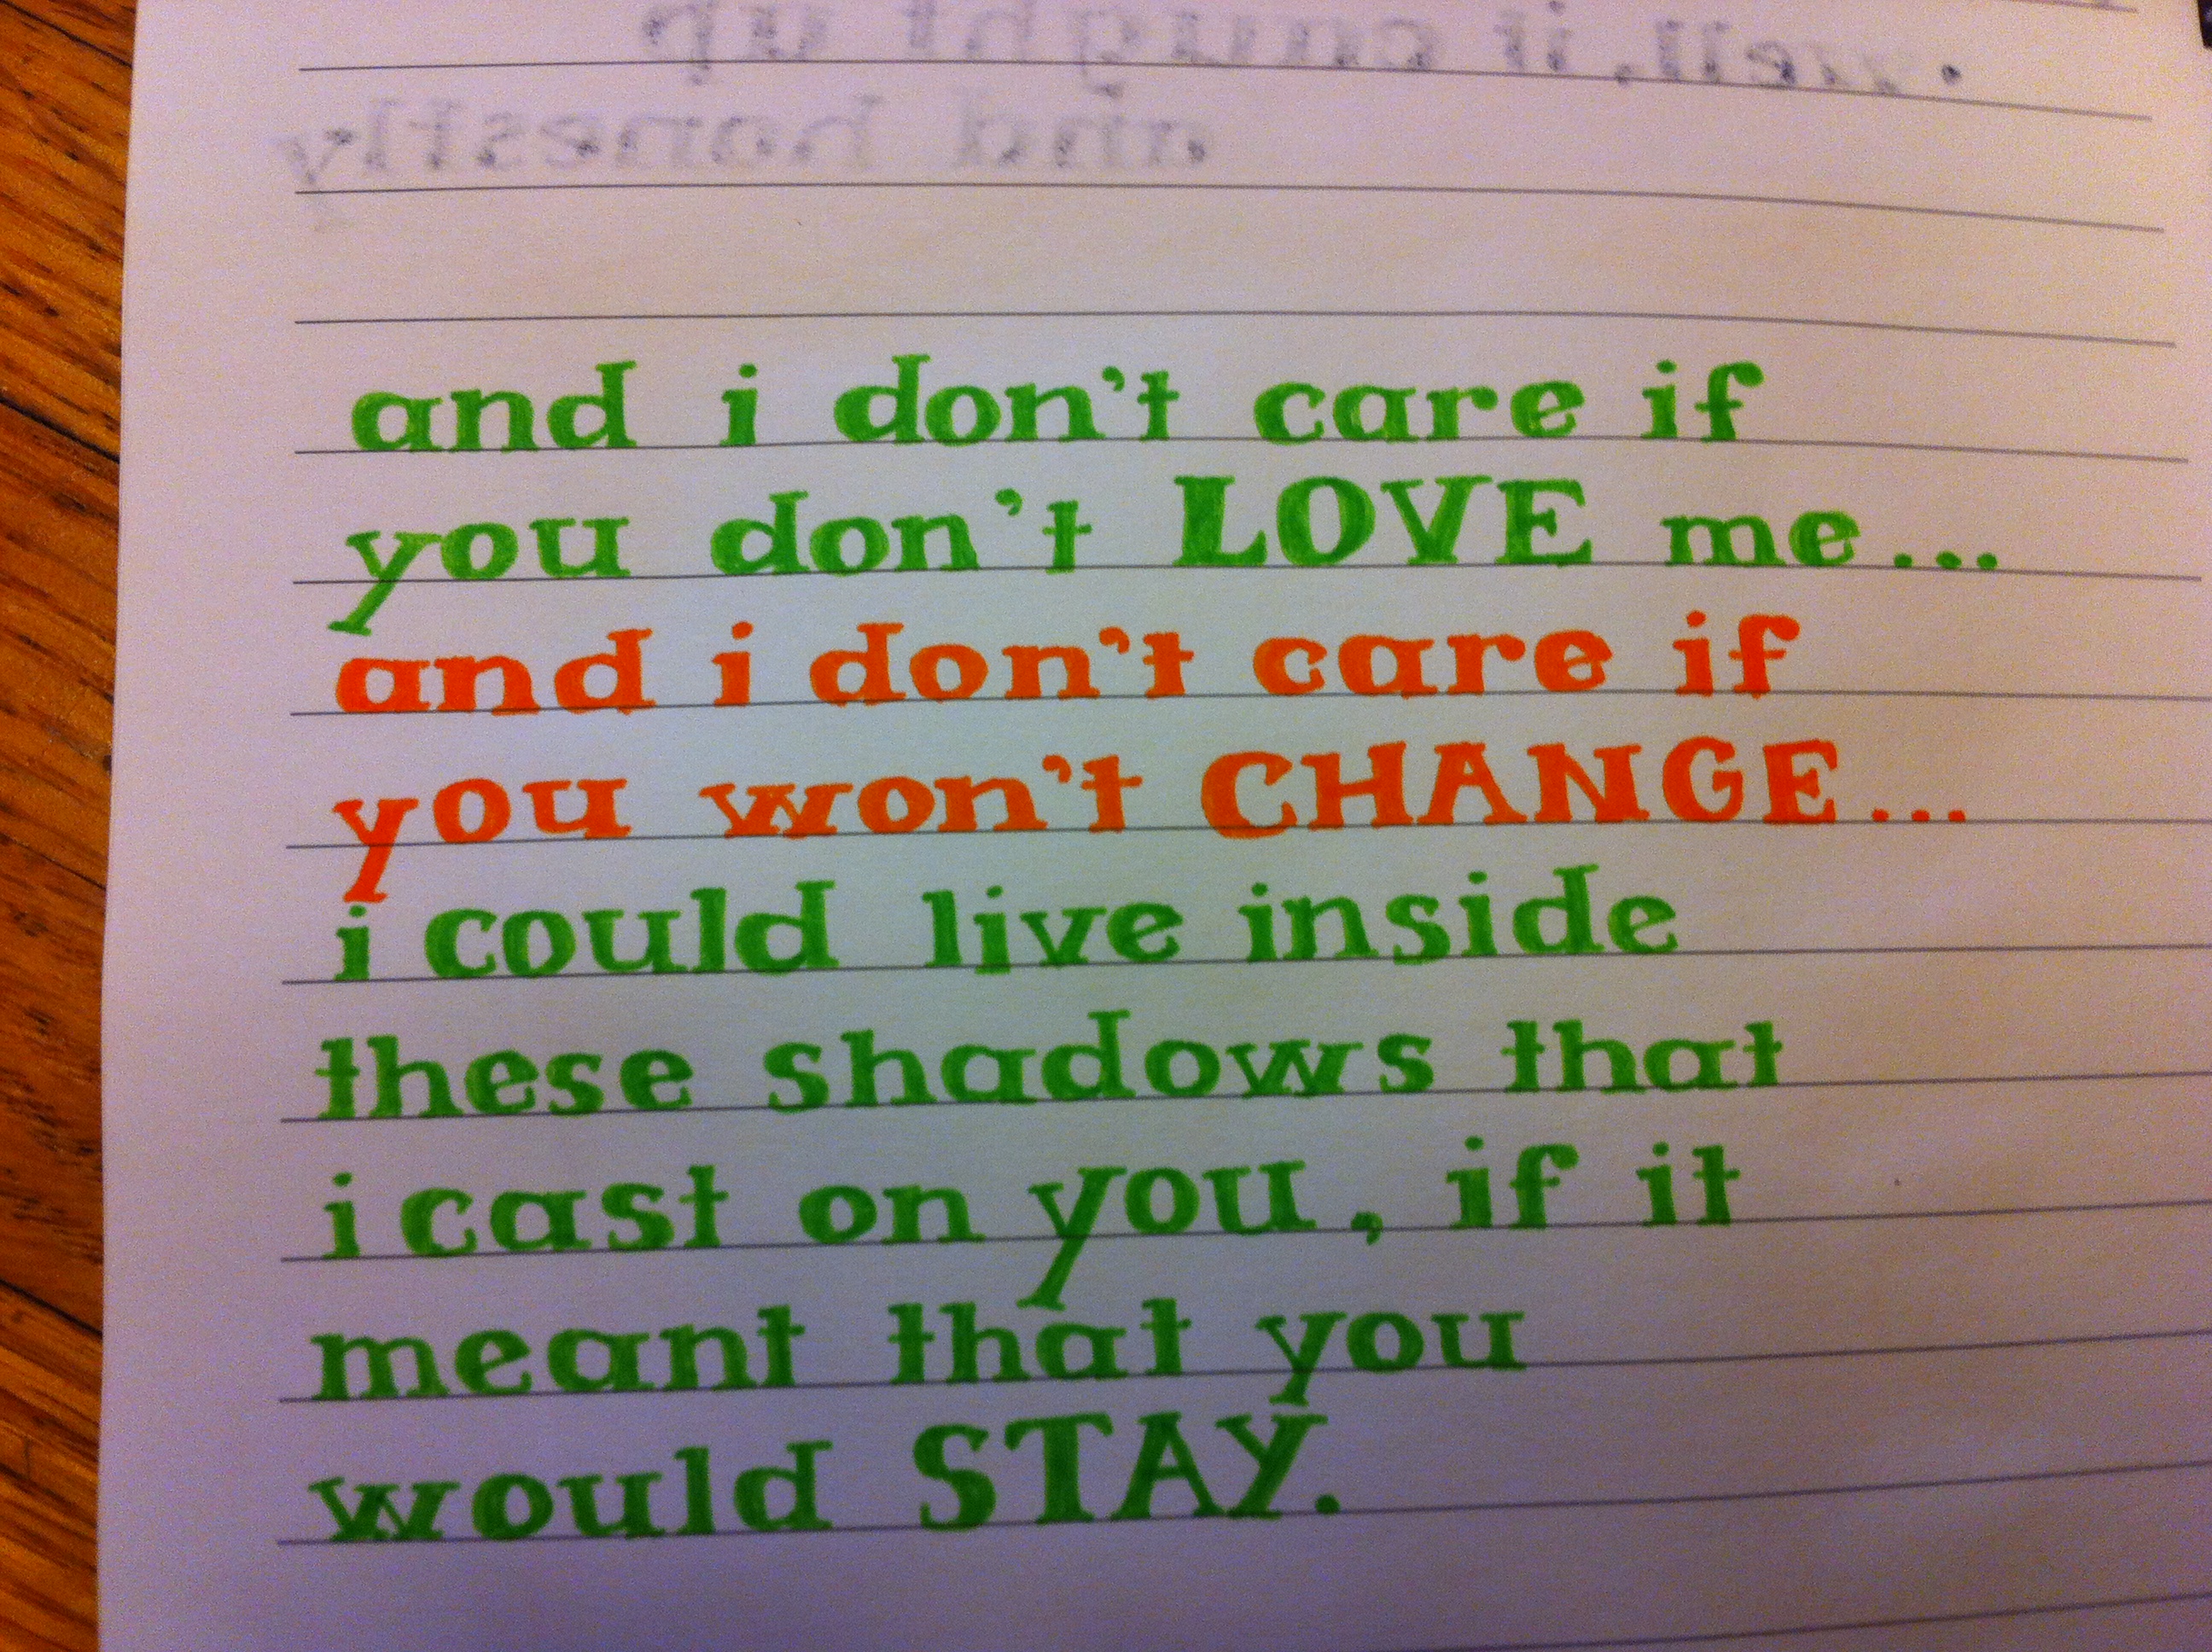 well, it caught up
and honestly
and i don't care if
you don't LOVE me...
and i don't care if
you won't CHANGE...
i could live inside
these shadows that
i cast on you, if it
meant that you
would STAY.